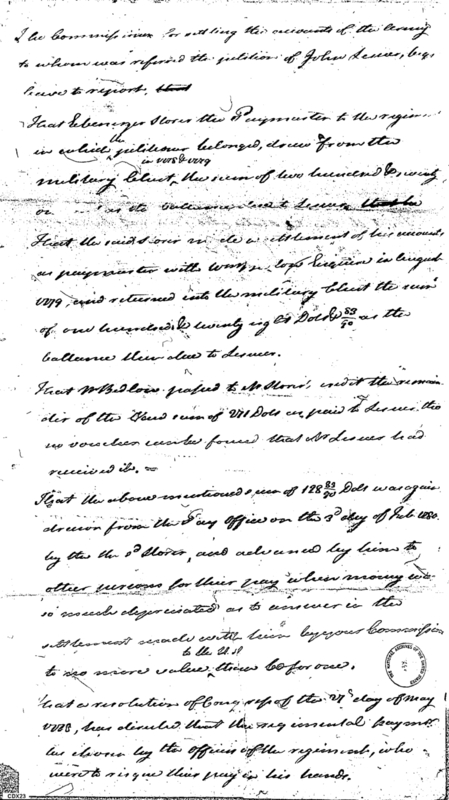 The Commissioner for settling the accounts of the Army
to whom was referred the petition of John Lesuer, begs
leave to report, that
That Ebenezer Storer the Paymaster to the regim
in which the petitioner belonged, drew from the
in 1778 & 1779
military Chest, the sum of two hundred & seventy
as the ballance due to Lesuer that he
That the said Storer made a settlement of his accounts
as paymaster with Esquire in August
1779, and returned into the military Chest the sum
of one hundred & twenty eight Dols & 83/90 as the
ballance then due to Lesuer.
That Mr Bedlow passed to Mr Storer's credit the remain
der of the said sum of Dols as paid to Lesuer, tho
no voucher can be found that Mr Lesuer had
received it.
That the above mentioned sum of 128 83/90 Dols was again
drawn from the Pay Office on the 3d day of Feb 1780.
by the sd Storer, and advanced by him to
other persons for their pay when money was
so much depreciated as to answer in the
settlement made with him by your Commissioner
to the U.S
to no more value than for one.
That a resolution of Congress of the day of May
1778, has directed that the regimental paymr
be chosen by the officers of the regiment, who
were to risque their pay in his hands.
THE NATIONAL ARCHIVES OF THE UNITED STATES
CDX23